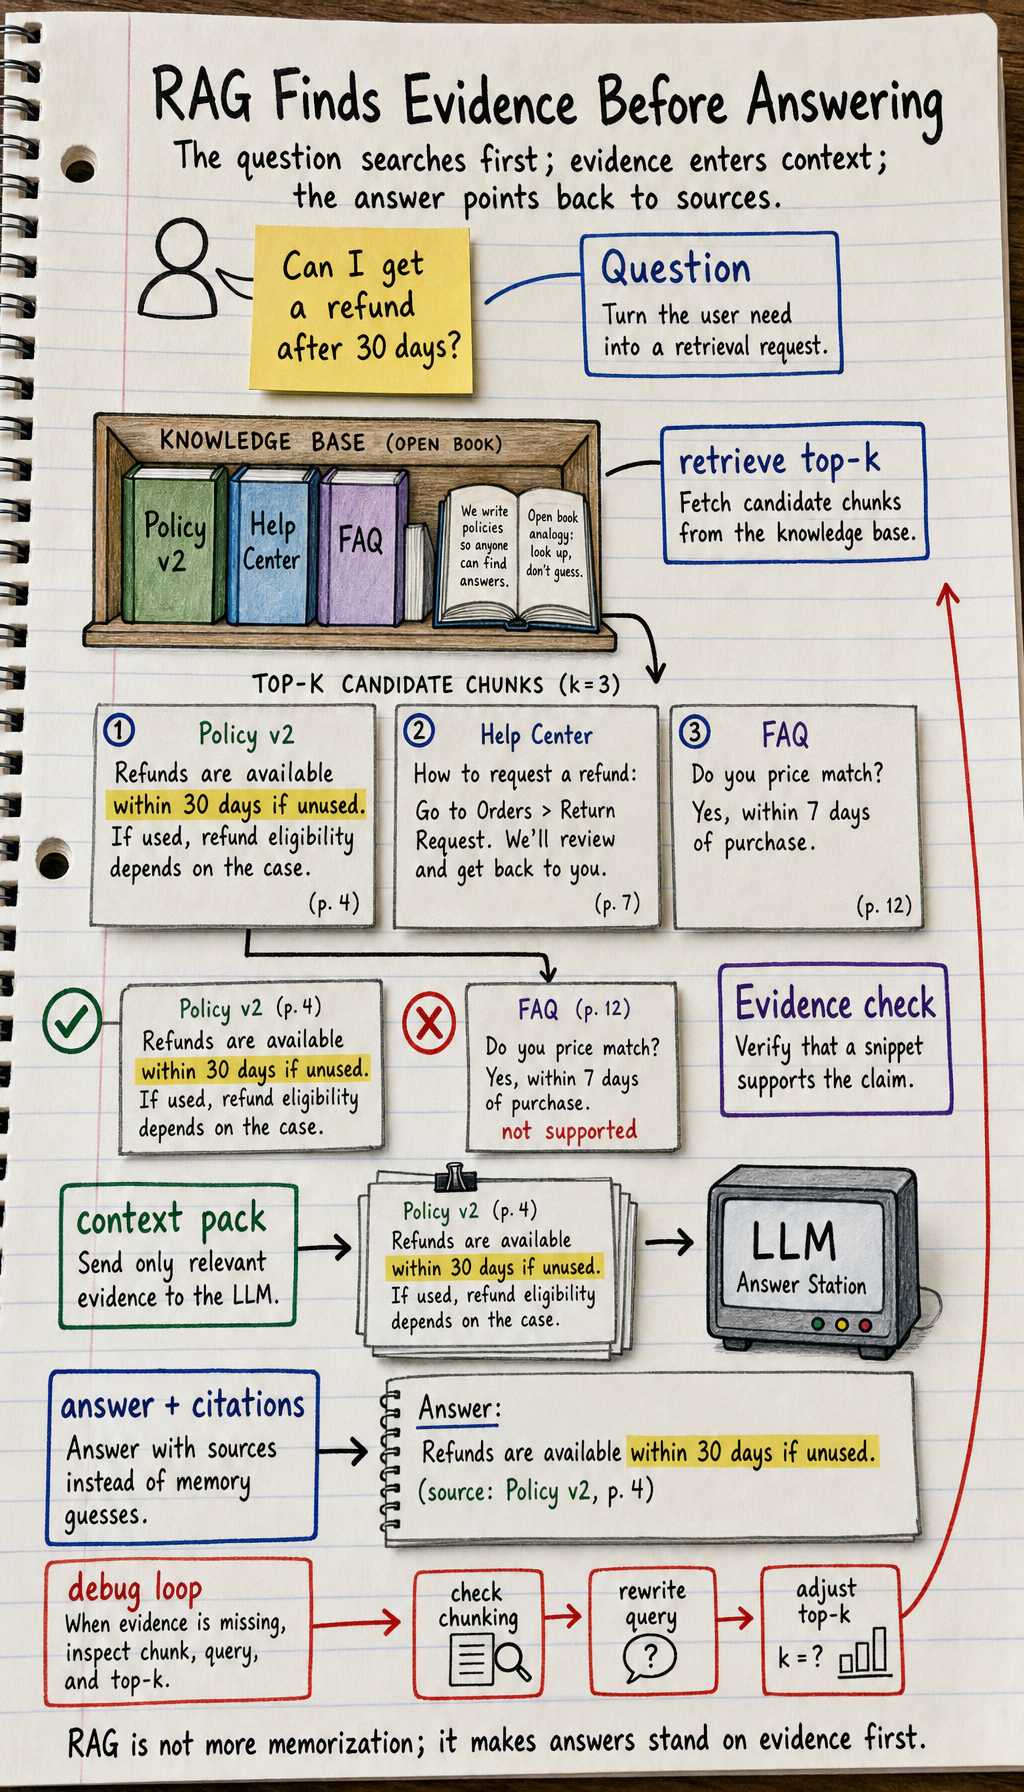 RAG Finds Evidence Before Answering
The question searches first; evidence enters context;
the answer points back to sources.
Can I get
a refund
after 30 days?
Question
Turn the user need
into a retrieval request.
KNOWLEDGE BASE (OPEN BOOK)
Policy
v2
Help
Center
FAQ
We write
policies
so anyone
can find
answers.
Open book
analogy:
look up,
don't guess.
retrieve top-k
Fetch candidate chunks
from the knowledge base.
TOP-K CANDIDATE CHUNKS (k=3)
1 Policy v2
Refunds are available
within 30 days if unused.
If used, refund eligibility
depends on the case.
(p. 4)
2 Help Center
How to request a refund:
Go to Orders > Return
Request. We'll review
and get back to you.
(p. 7)
3 FAQ
Do you price match?
Yes, within 7 days
of purchase.
(p. 12)
Policy v2 (p. 4)
Refunds are available
within 30 days if unused.
If used, refund eligibility
depends on the case.
FAQ (p. 12)
Do you price match?
Yes, within 7 days
of purchase.
not supported
Evidence check
Verify that a snippet
supports the claim.
context pack
Send only relevant
evidence to the LLM.
Policy v2 (p. 4)
Refunds are available
within 30 days if unused.
If used, refund eligibility
depends on the case.
LLM
Answer Station
answer + citations
Answer with sources
instead of memory
guesses.
Answer:
Refunds are available within 30 days if unused.
(source: Policy v2, p. 4)
debug loop
When evidence is missing,
inspect chunk, query,
and top-k.
check
chunking
rewrite
query
?
adjust
top-k
k = ?
RAG is not more memorization; it makes answers stand on evidence first.